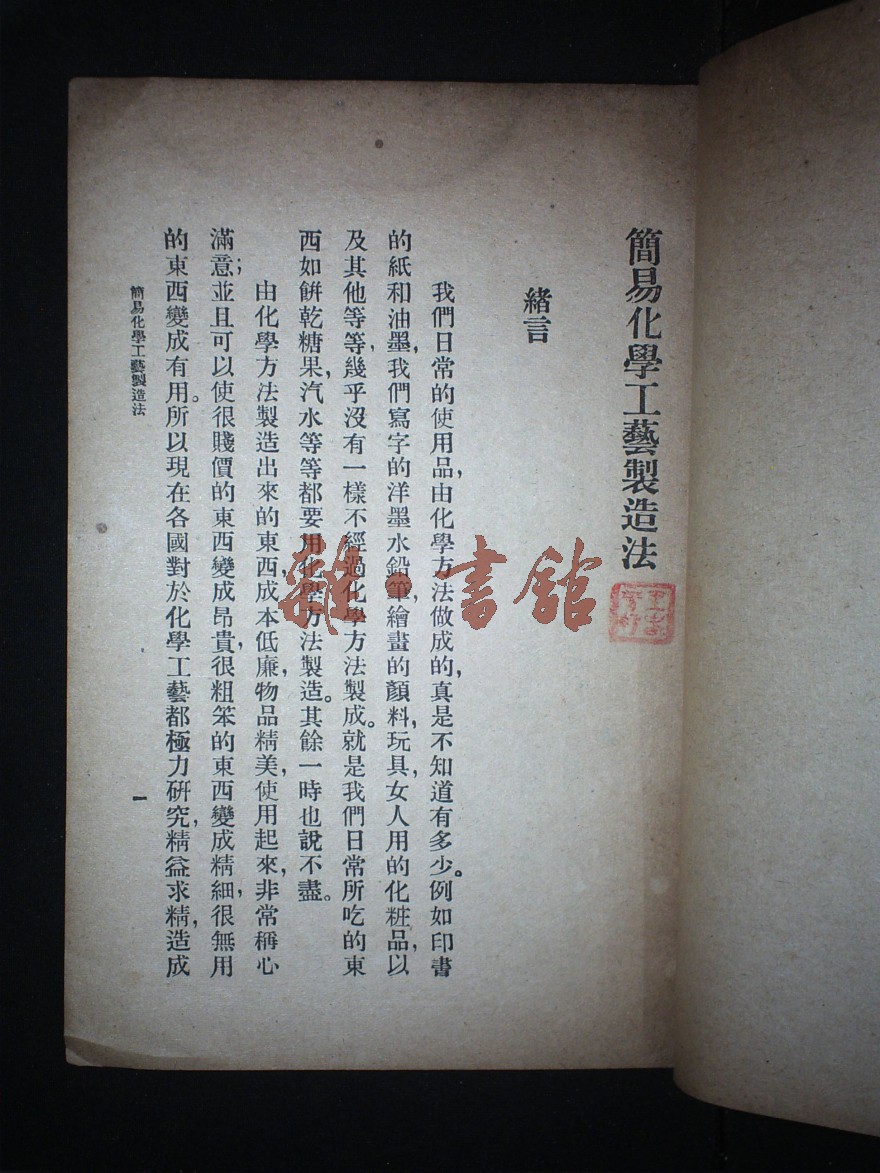 簡易化學工藝製造法
緒言
我們日常的使用品,由化學方法做成的,真是不知道有多少。例如印書
的紙和油墨,我們寫字的洋墨水鉛筆,繪畫的顏料,玩具,女人用的化粧品,以
及其他等等,幾乎沒有一樣不經過化學方法製成。就是我們日常所吃的東
西如餅乾糖果,汽水等等都要用化學方法製造。其餘一時也說不盡。
由化學方法製造出來的東西,成本低廉,物品精美,使用起來,非常稱心
滿意;並且可以使很賤價的東西變成昂貴,很粗笨的東西變成精細,很無用
的東西變成有用。所以現在各國對於化學工藝都極力研究,精益求精,造成
簡易化學工藝製造法
一
雜·書館